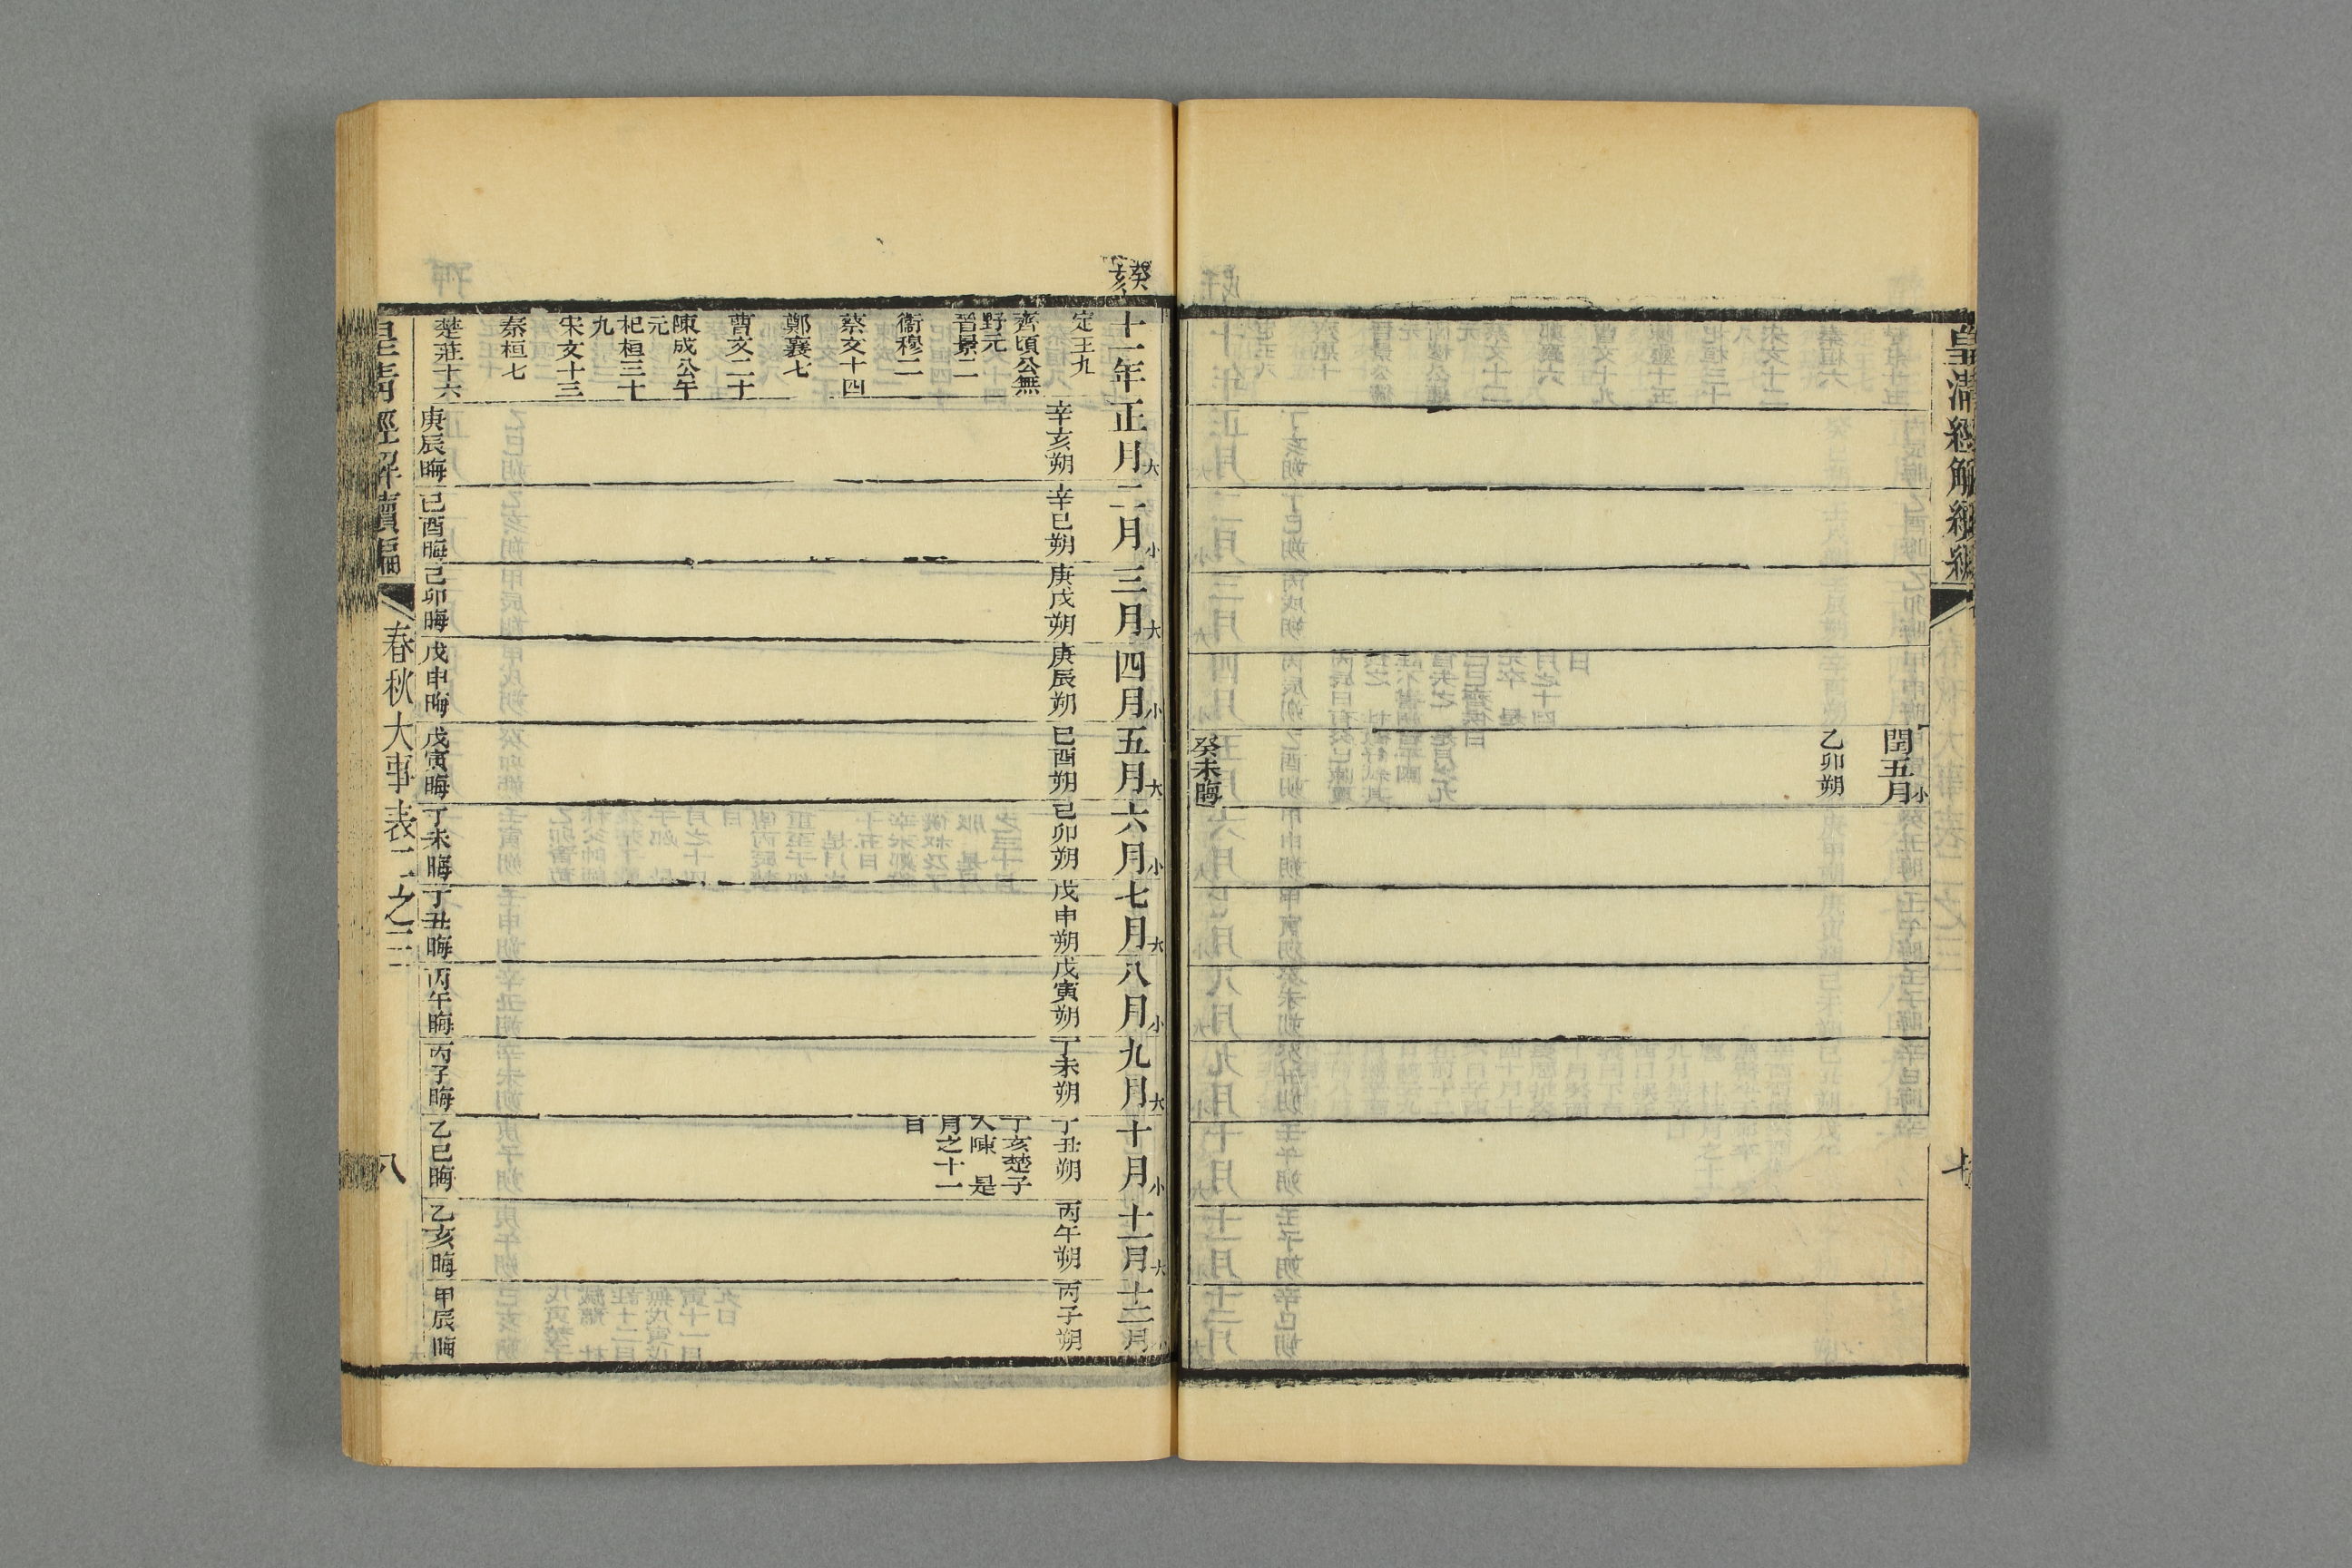 皇清經解續編
七
閏五月小
乙卯朔
癸未晦
癸亥
十一年
定王九
齊頃公無
野元
晉景二
衞穆二
蔡文十四
鄭襄七
曹文二十
陳成公午
元
杞桓三十
九
宋文十三
秦桓七
楚莊十六
正月大
辛亥朔
庚辰晦
二月小
辛巳朔
己酉晦
三月大
庚戌朔
己卯晦
四月小
庚辰朔
戊申晦
五月大
己酉朔
戊寅晦
六月小
己卯朔
丁未晦
七月大
戊申朔
丁丑晦
八月小
戊寅朔
丙午晦
九月大
丁未朔
丙子晦
十月小
丁丑朔
丁亥楚子
入陳 是
月之十一
日
乙巳晦
十一月大
丙午朔
乙亥晦
十二月小
丙子朔
甲辰晦
皇清經解續編
春秋大事表二之三
八